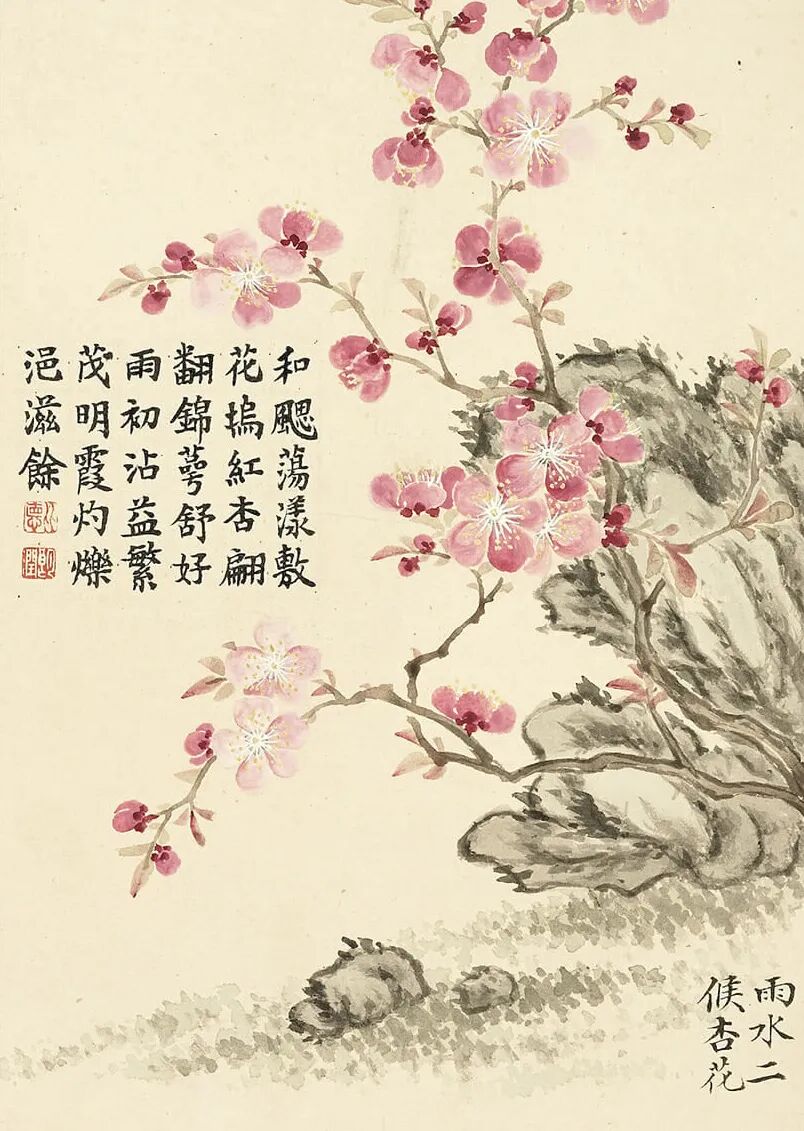 和颸蕩漾敷
花塢紅杏翩
翻錦蕚舒好
雨初沾益繁
茂明霞灼爍
浥滋餘
雨水二
候杏花